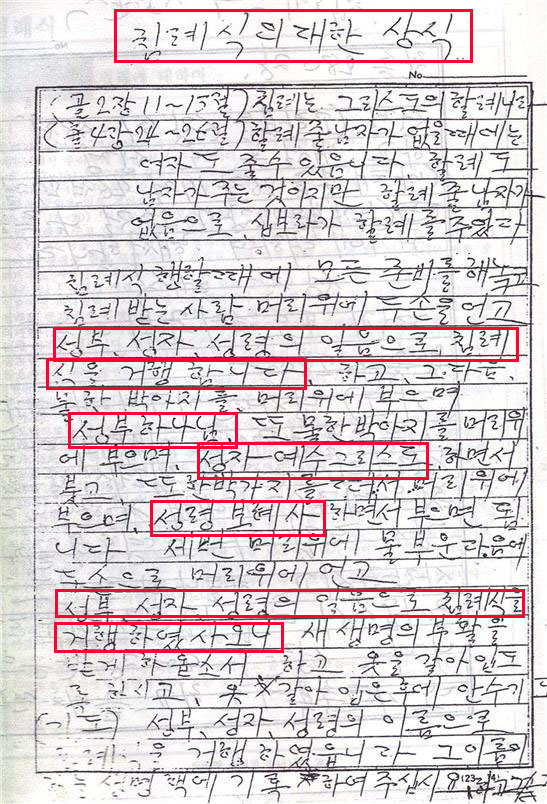 침례식의 대한 상식
No.
(골2장 11~15절) 침례는 그리스도의 할례니라
(출4장 24~26절) 할례 줄 남자가 없을 때에는
여자도 줄 수 있읍니다. 할례도
남자가 주는 것이지만 할례 줄 남자가
없음으로, 십보라가 할례를 주었다
침례식 행할 때에 모든 준비를 해놓고
침례 받는 사람 머리위에 두손을 언고
성부, 성자, 성령의 일음으로, 침례
식을 거행 합니다, 하고, 그 다음,
물한 박아지를, 머리위에 부으며
성부하나님, 또 물한박아지를 머리우
에 부으며, 성자 예수그리스도, 하면서
붓고, 또한박가지를 머리위에
부으며, 성령 보혜사 하면서 부으면 됨
니다 세번 머리위에 물부은다음에
두손으로 머리위에 언고
성부, 성자, 성령의 일음으로 침례식을
거행하였사오니 새 생명의 부활을
하옵소서 하고 옷을 갈아 입도
록 하시고, 옷 갈아 입은후에 안수기도
(기도) 성부, 성자, 성령의 이름으로
을 거행 하였읍니다 그 이름이
생명책에 기록 하여 주십시